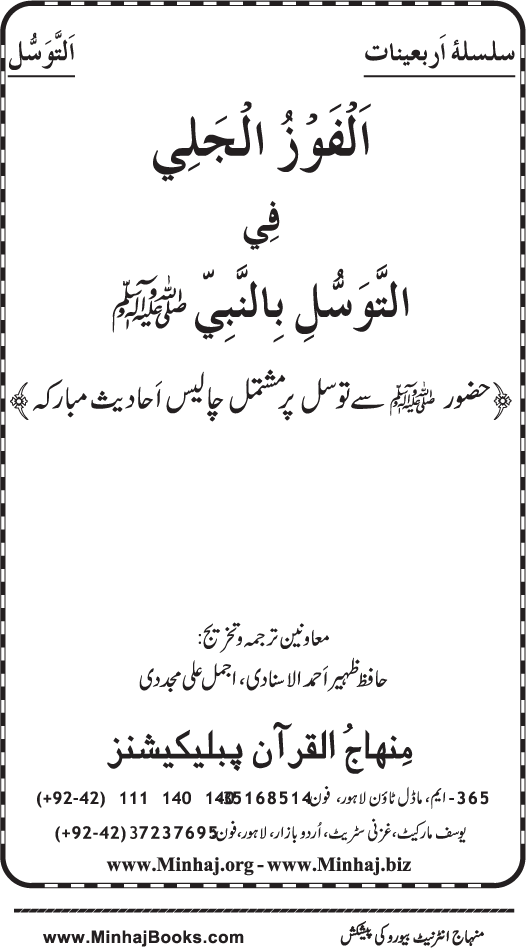 سلسلۂ اَربعینات
اَلتَّوَسُّل
اَلْفَوْزُ الْجَلِي
فِي
التَّوَسُّلِ بِالنَّبِيِّ ﷺ
﴿حضور ﷺ سے توسل پر مشتمل چالیس اَحادیث مبارکہ﴾
معاونین ترجمہ و تخریج:
حافظ ظہیر اَحمد الاسنادی، اجمل علی مجددی
مِنہاجُ القرآن پبلیکیشنز
365- ایم، ماڈل ٹاؤن لاہور، فون 35168514 140 140 111 (42-92+)
یوسف مارکیٹ، غزنی سٹریٹ، اُردو بازار، لاہور، فون 37237695 (42-92+)
www.Minhaj.org - www.Minhaj.biz
منہاج انٹرنیٹ بیورو کی پیشکش
www.MinhajBooks.com